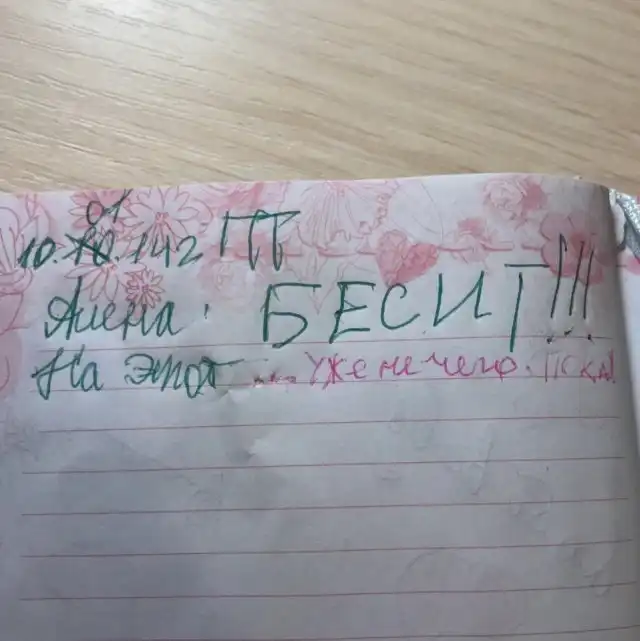 01
10.10.142 ПТ
Алена: БЕСИТ!!!
На этот ... уже не чего. ПОКА!